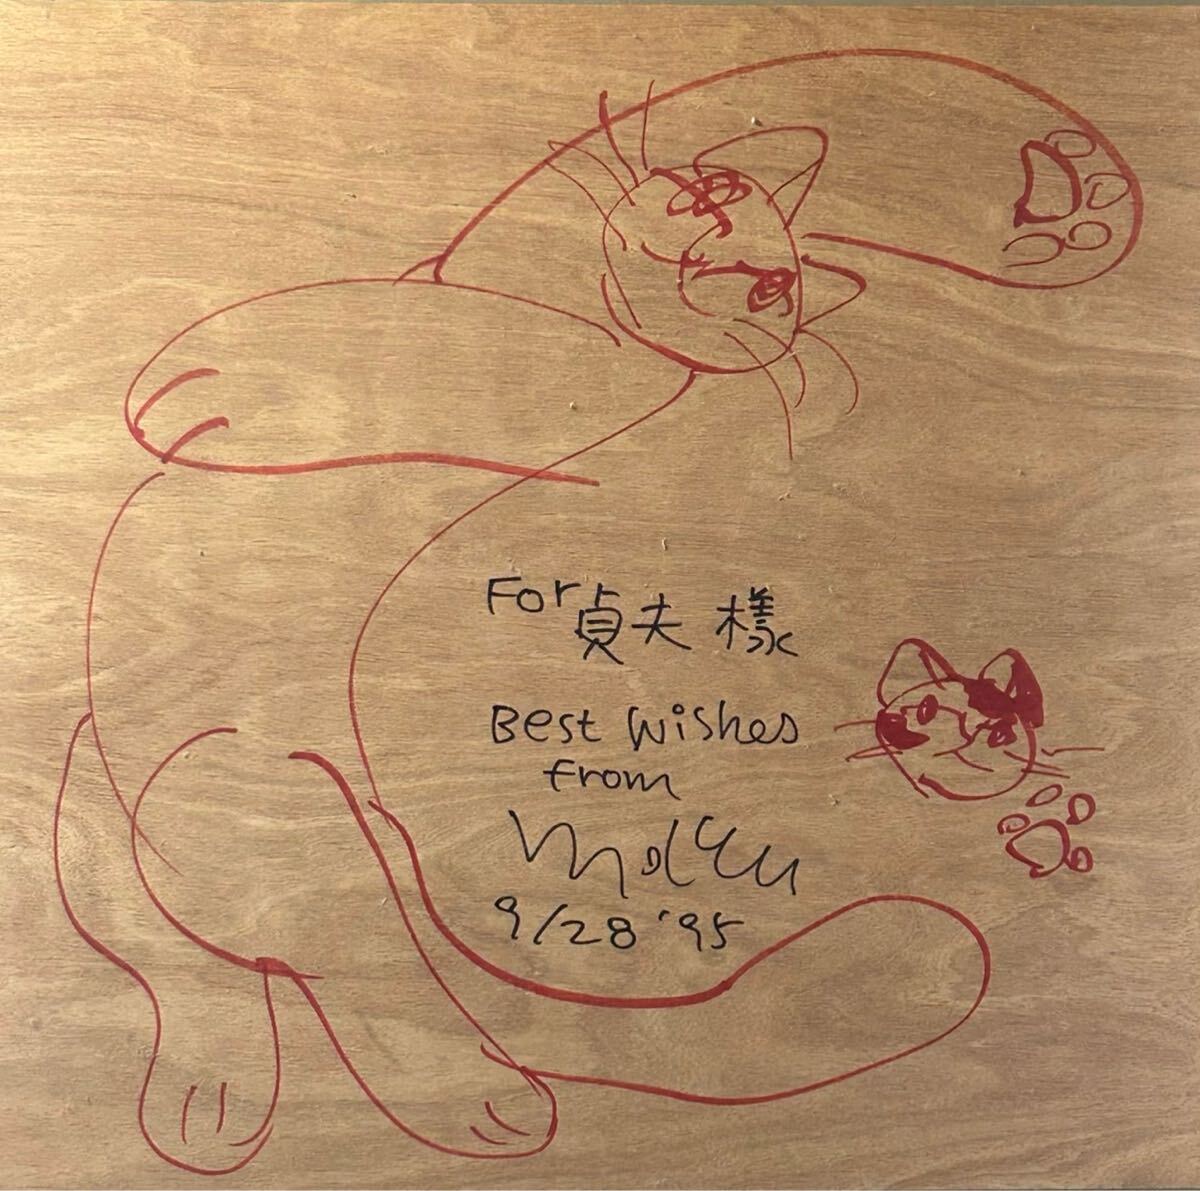 For 貞夫 様
Best Wishes
from
9/28 '95